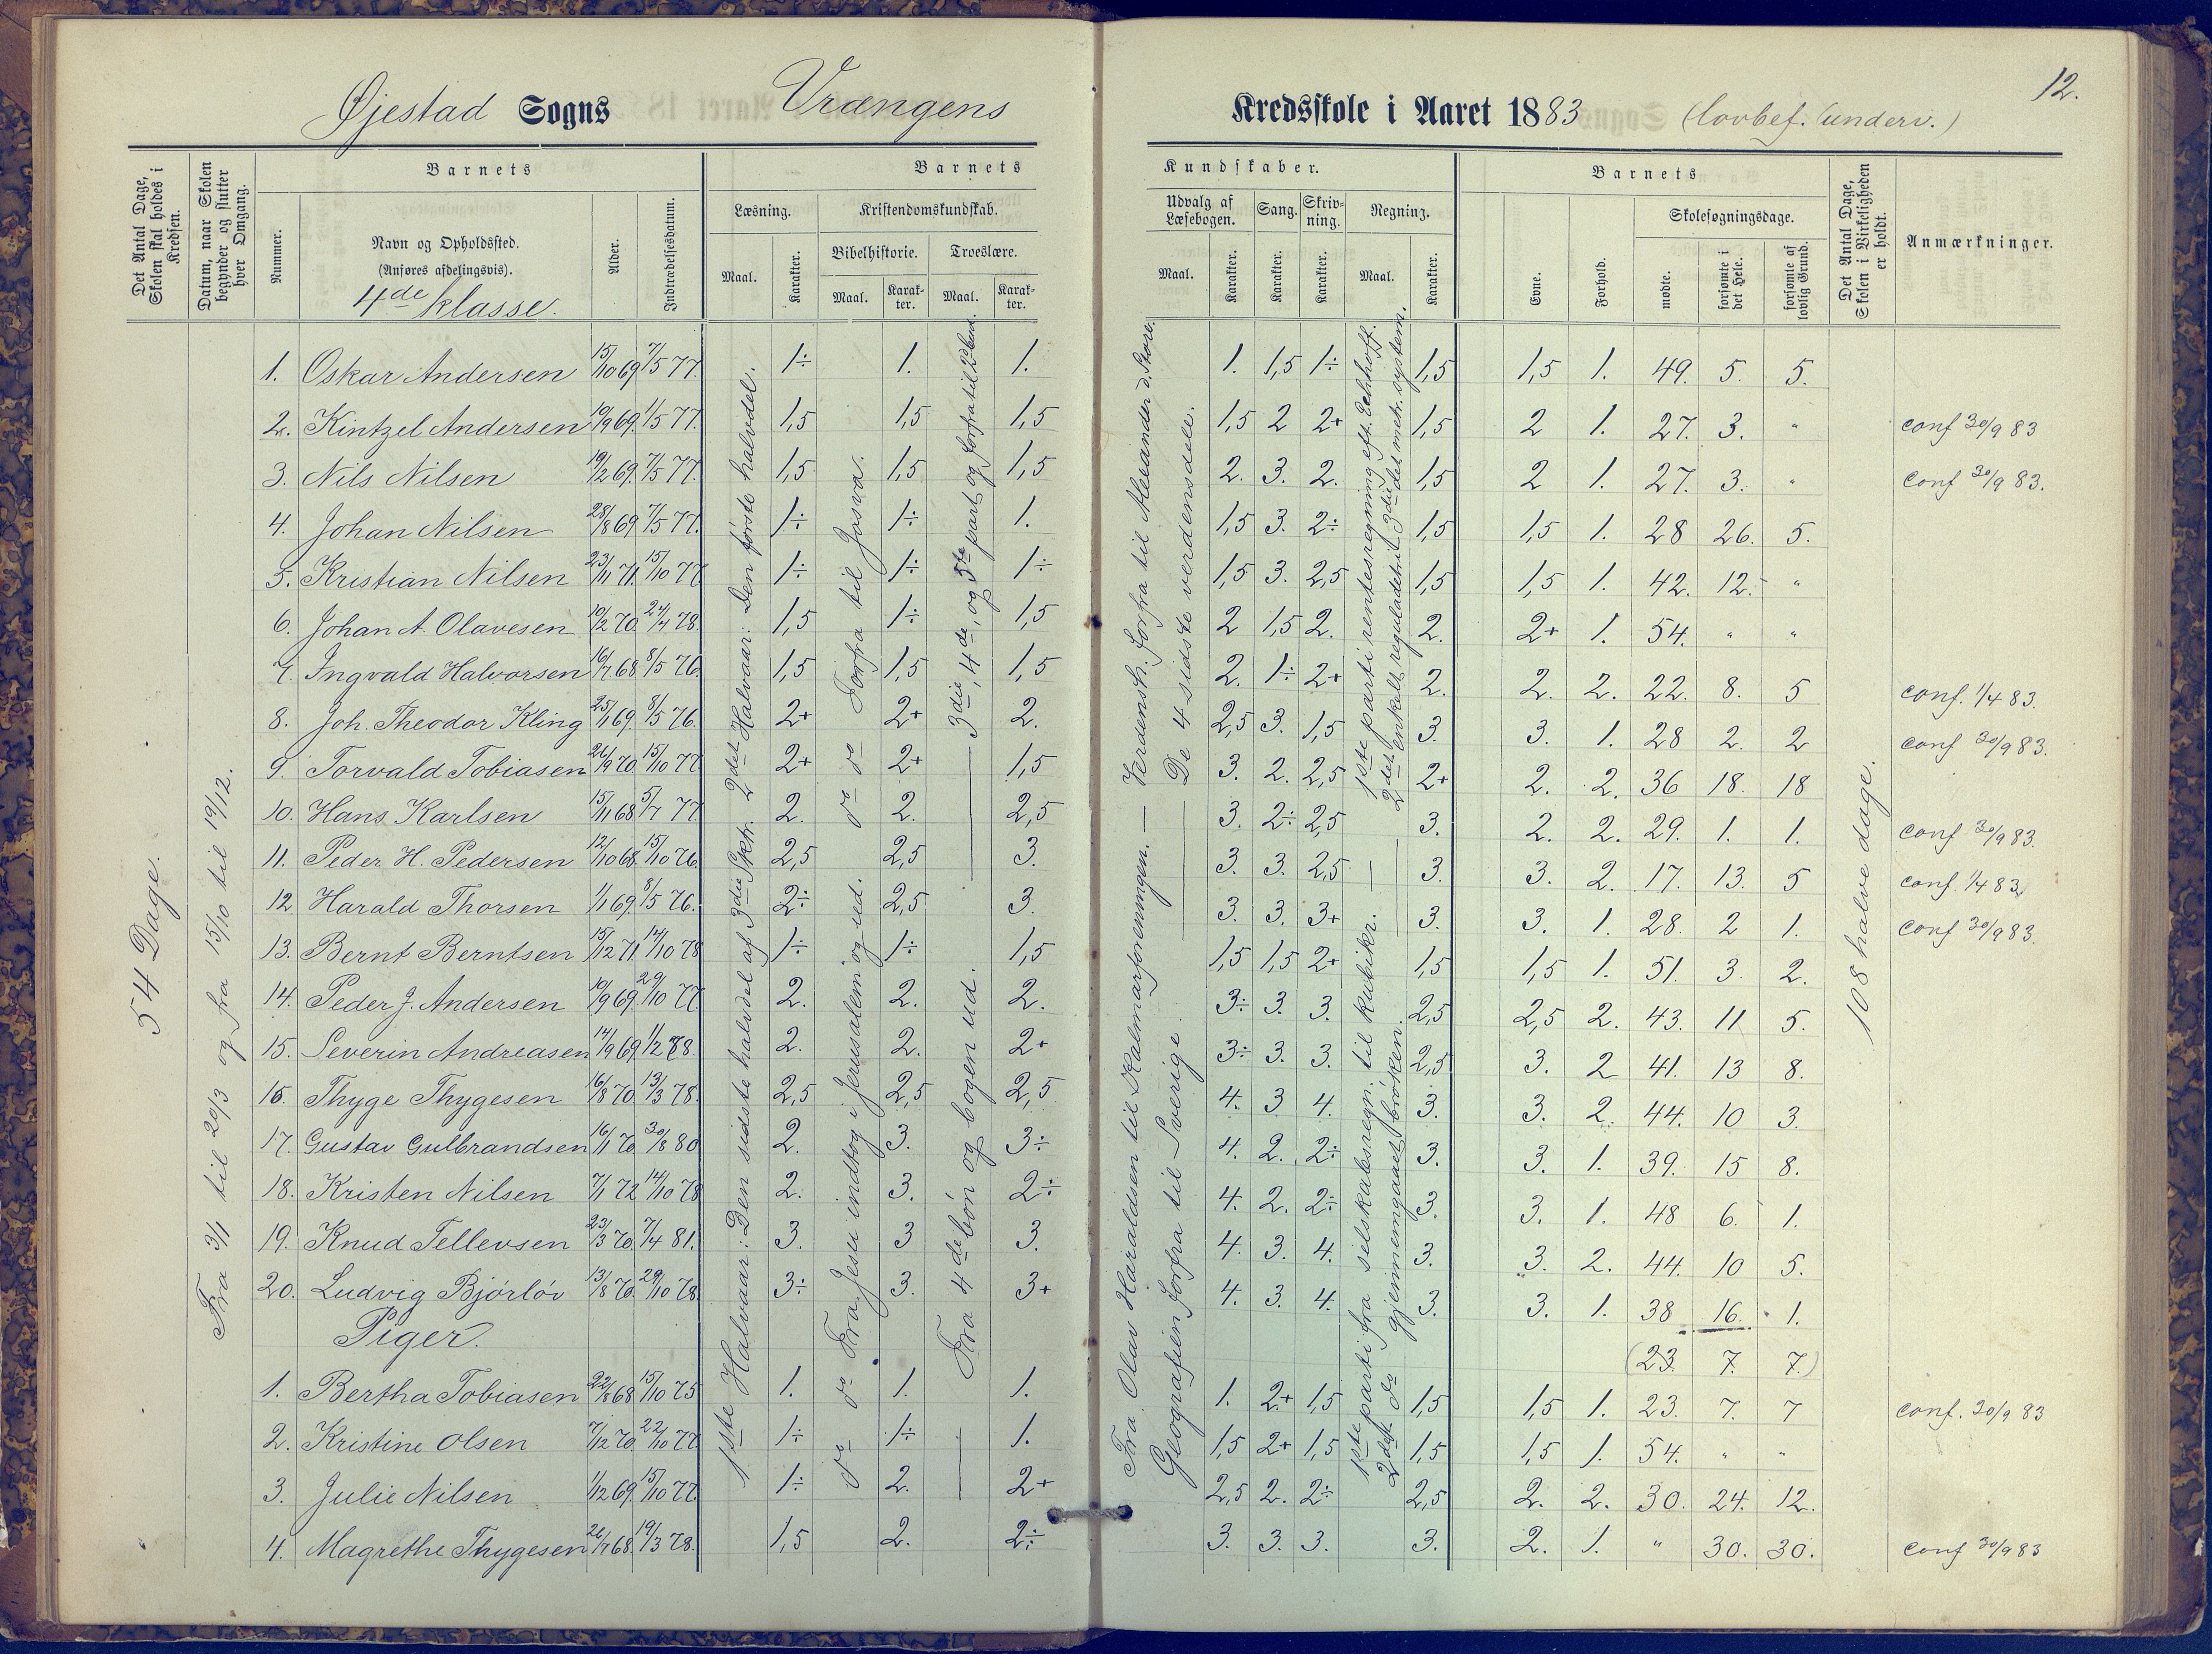 12.
Øjestad Sogns Vrængens Kredsskole i Aaret 1883 (lovbef. underv.)
Det Antal Dage, Skolen skal holdes i Kredsen.
Datum, naar Skolen begynder og slutter hver Omgang.
Barnets
Nummer.
Navn og Opholdssted.
(Anføres afdelingsvis).
4de klasse.
Alder.
Indtrædelsesdatum.
Barnets Kundskaber.
Læsning.
Maal.
Karakter.
Kristendomskundskab.
Bibelhistorie.
Maal.
Karakter.
Troeslære.
Maal.
Karakter.
Udvalg af Læsebogen.
Maal.
Karakter.
Sang.
Karakter.
Skrivning.
Karakter.
Regning.
Maal.
Karakter.
Barnets
Evne.
Forhold.
Skolesøgningsdage.
mødte.
forsømte i det Hele.
forsømte af lovlig Grund.
Det Antal Dage, Skolen i Virkeligheden er holdt.
Anmærkninger.
54 Dage.
Fra 3/1 til 20/3 og fra 15/10 til 19/12.
1ste Halvaar: Den sidste halvdel af 3die Sktr. 2det Halvaar: Den første halvdel.
Fra Jesu indtog i Jerusalem og ud. Forfra til Josva.
Fra 4de bøn og bogen ud. 3die, 4de, og 5te part og forfra til 2 bud.
Fra Olav Haraldsen til Kalmarforeningen. — Verdensh. forfra til Alexander d. Store.
Geografien forfra til Sverige. — De 4 sidste verdensdele.
1ste parti fra selskabsregn. til kubikr. — 1ste parti rentesregning eft. Echhoff.
2det do gjennemgaaet brøken. 2det enkelt reguladetri 3die det metr. system.
108 halve dage.
1. Oskar Andersen 15/10 69 7/5 77. 1÷ 1. 1. 1. 1,5 1÷ 1,5 1,5 1. 49. 5. 5.
2. Kintzel Andersen 10/9 69. 1/5 77. 1,5 1,5 1,5 1,5 2 2+ 1,5 2 1. 27. 3. " conf 30/9 83
3. Nils Nilsen 19/2 69. 7/5 77. 1,5 1,5 1,5 2. 3. 2. 1,5 2 1. 27. 3. " conf 30/9 83.
4. Johan Nilsen 28/8 69 7/5 77. 1÷ 1÷ 1. 1,5 3. 2÷ 1,5 1,5 1. 28 26. 5.
5. Kristian Nilsen 23/11 71. 15/10 77 1÷ 1÷ 1÷ 1,5 3. 2,5 1,5 1,5 1. 42. 12. "
6. Johan A. Olavesen 10/2 70. 24/4 78. 1,5 1÷ 1,5 2 1,5 2. 2. 2+ 1. 54. " "
7. Ingvald Halvorsen 16/7 68 8/5 76. 1,5 1,5 1,5 2. 1÷ 2+ 2. 2. 2. 22. 8. 5 conf. 1/4 83.
8. Joh. Theodor Kling 25/1 69. 8/5 76. 2+ 2+ 2. 2,5 3. 1,5 3. 3. 1. 28 2. 2 conf 30/9 83.
9. Torvald Tobiasen 26/9 70. 15/10 77 2+ do 2+ — 1,5 3. 2. 2,5 2+ 2. 2. 36 18. 18
10. Hans Karlsen 15/11 68 5/7 77. 2. do 2. 2,5 3. 2÷ 2,5 3. 2. 2. 29. 1. 1. conf 30/9 83.
11. Peder H. Pedersen 12/10 68. 15/10 76. 2,5 2,5 — 3. 3. 3. 2,5 — 3. 3. 2. 17. 13. 5 conf. 1/4 83.
12. Harald Thorsen 1/1 69. 8/5 76. 2÷ 2,5 3. 3. 3. 3+ 3. 3. 1. 28. 2 1. conf 30/9 83.
13. Bernt Berntsen 15/12 71. 14/10 78 1÷ 1÷ 1,5 1,5 1,5 2+ 1,5 1,5 1. 51. 3. 2.
14. Peder J. Andersen 10/9 69. 29/10 77 2. 2. 2. 3÷ 3. 3. 2,5 2,5 2. 43. 11 5.
15. Severin Andreasen 14/9 69. 1/2 78. 2. 2. 2+ 3÷ 3. 3. 2,5 3. 2 41. 13 8.
16. Thyge Thygesen 16/8 70. 13/3 78. 2,5 2,5 2,5 4. 3 4. 3. 3. 2. 44. 10 3.
17. Gustav Gulbrandsen 16/1 70. 30/8 80 2. 3. 3÷ 4. 2. 2÷ 3. 3. 1. 39. 15 8.
18. Kristen Nilsen 7/1 72 14/10 78 2. 3. 2÷ 4. 2. 2÷ 3. 3. 1. 48 6. 1.
19. Knud Tellevsen 23/3 70. 7/4 81. 3. 3 3. 4. 3. 4. 3. 3. 2. 44. 10 5.
20. Ludvig Bjørløv 13/8 70. 29/10 78. 3÷ 3. 3+ 4. 3. 4. 3. 3. 1. 38 16. 1.
Piger. (23. 7. 7.)
1. Bertha Tobiasen 22/8 68 15/10 75 1. do 1. 1. 1. 2+ 1,5 1,5 1,5 1. 23. 7. 7 conf. 30/9 83
2. Kristine Olsen 7/12 70. 22/10 77 1÷ do 1÷ — 1. 1,5 2+ 1,5 1,5 1,5 1. 54. " "
3. Julie Nilsen 1/12 69. 15/10 77. 1÷ 2. 2+ 2,5 2. 2÷ 2,5 2. 2. 30. 24. 12.
4. Magrethe Thygesen 26/7 68. 19/3 78. 1,5 2. 2÷ 3. 3. 3. 3. 2. 1. " 30. 30. conf 30/9 83